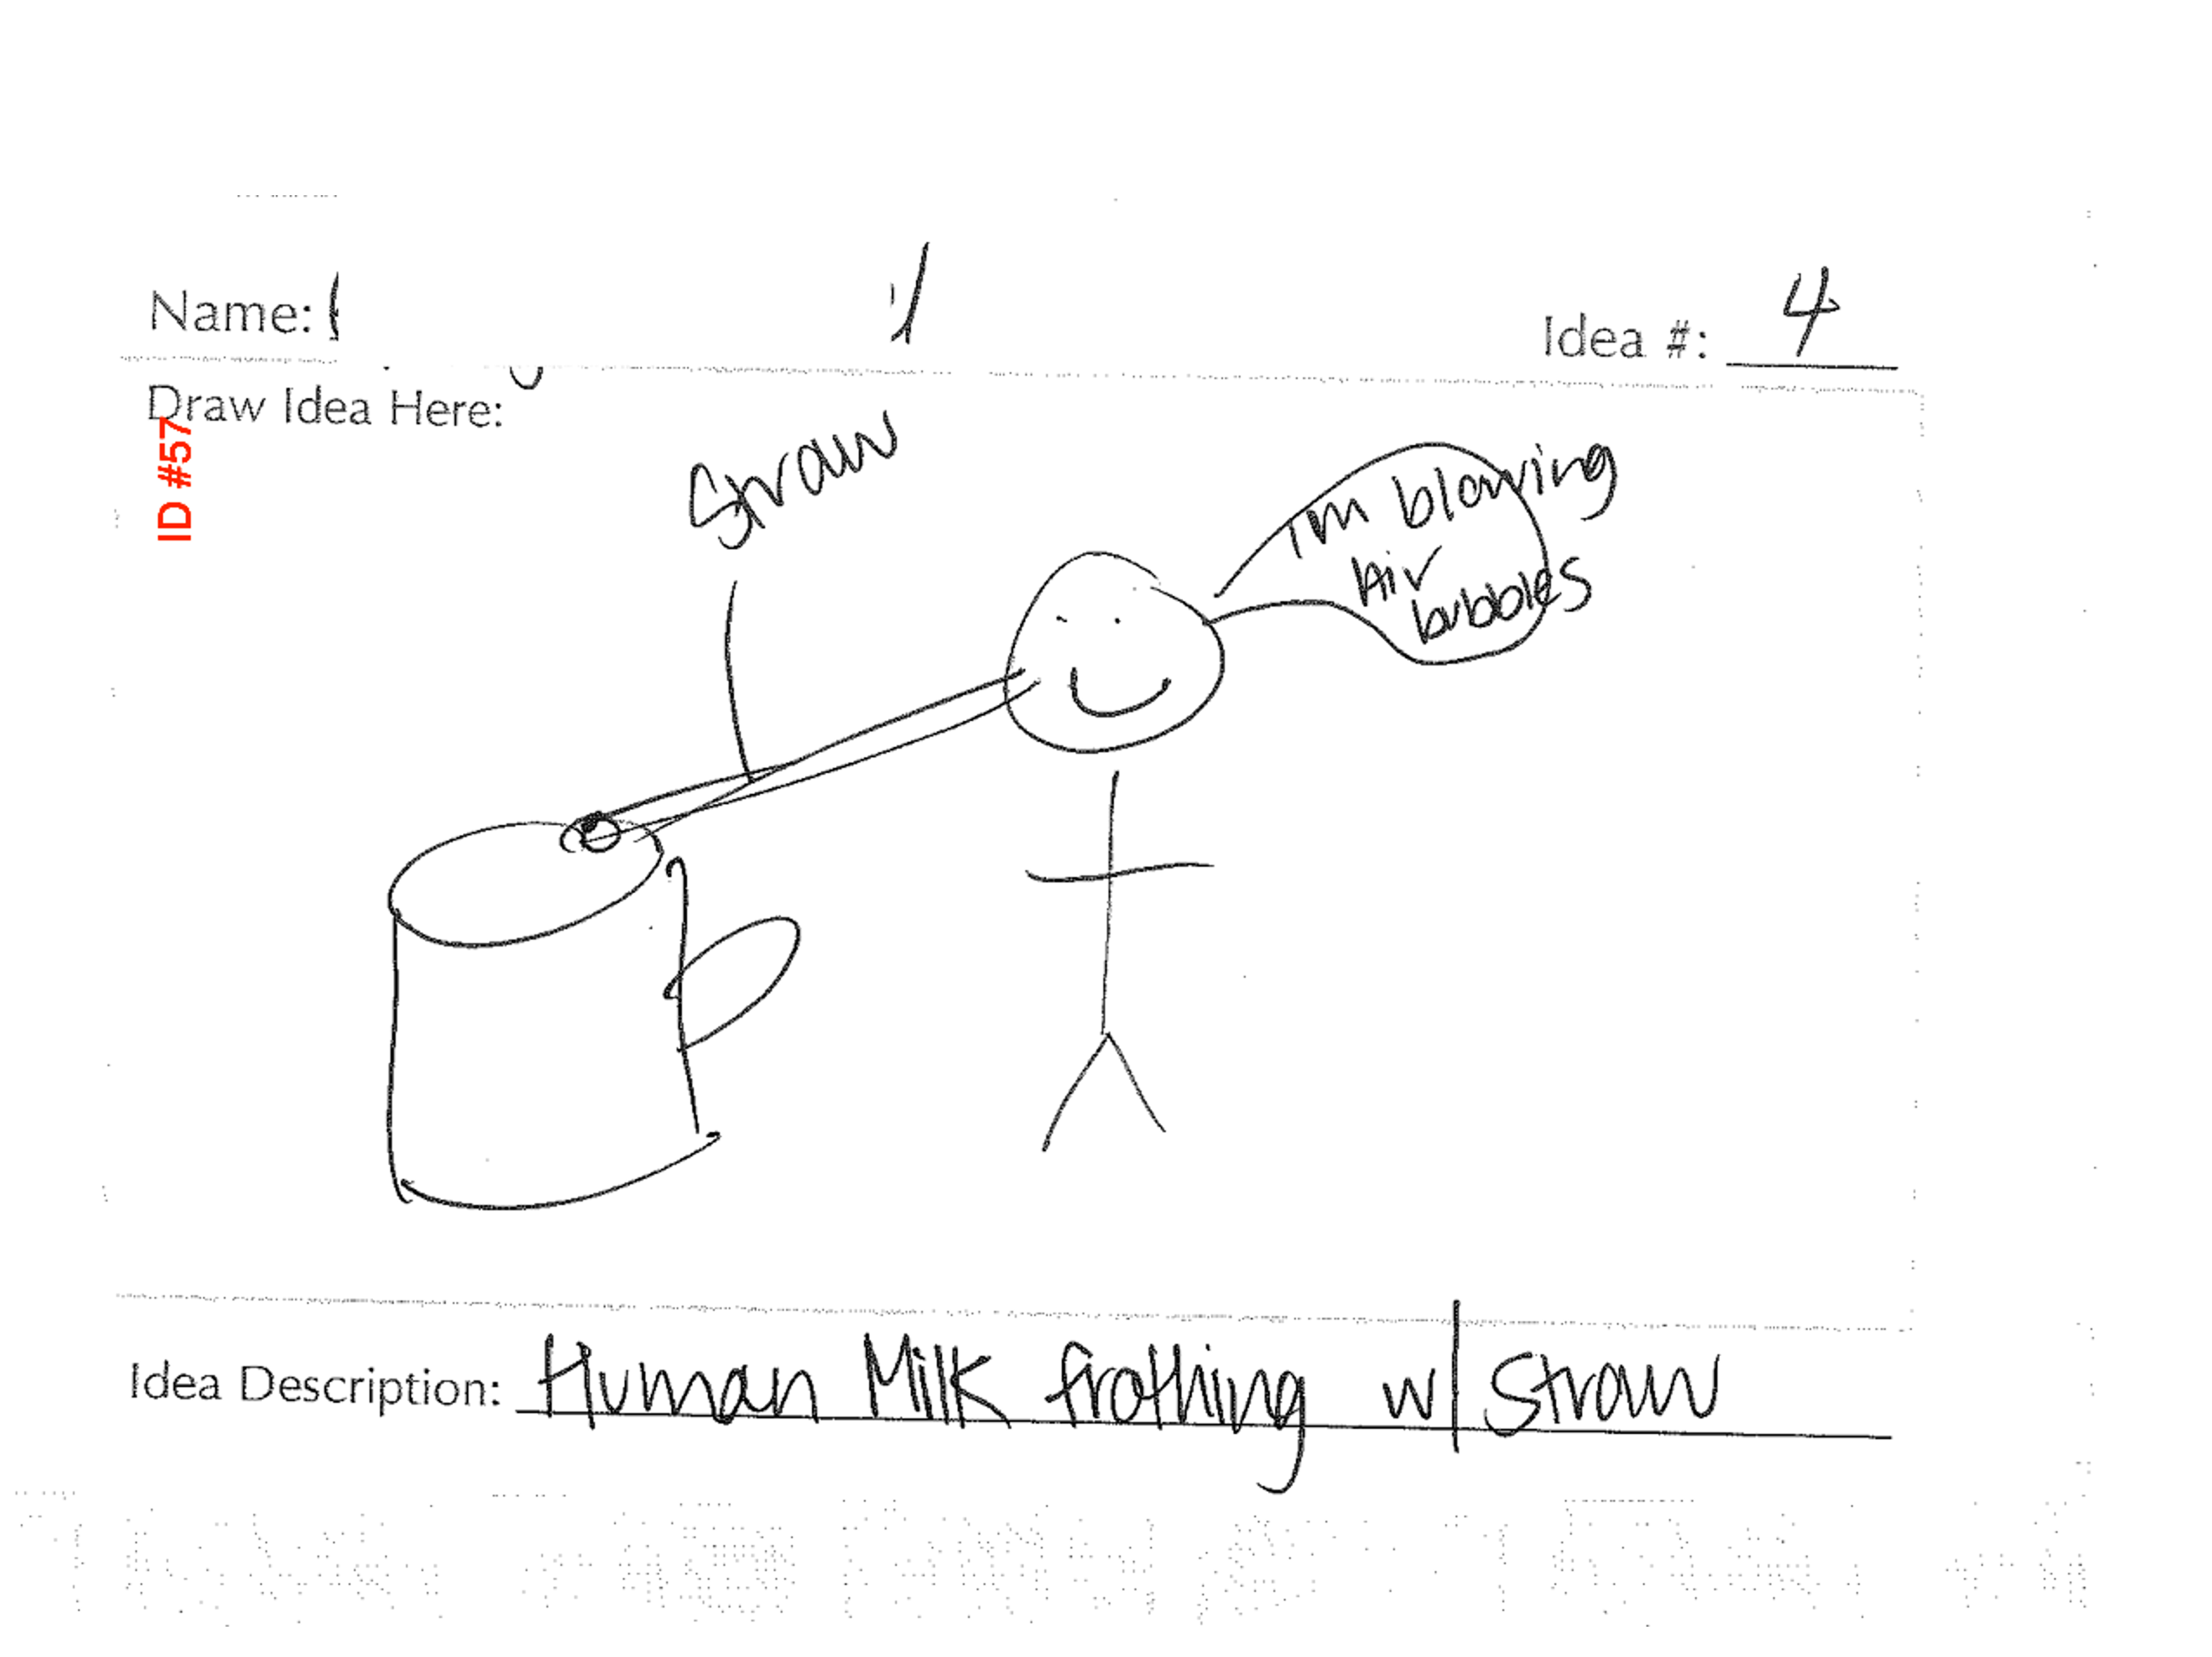 Name:
Idea #: 4
Draw Idea Here:
ID #57
Straw
I'm blowing
Air
bubbles
Idea Description: Human Milk frothing w/ straw